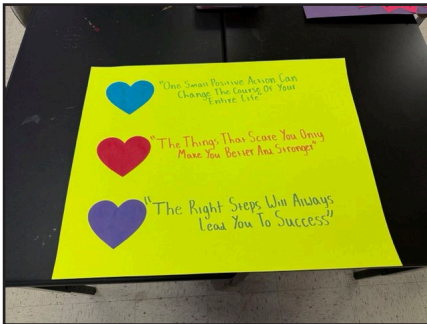 "One Small Positive Action Can
Change The Course Of Your
"Entire Life"
"The Things That Scare You Only
Make You Better And Stronger"
"The Right Steps Will Always
Lead You To Success"